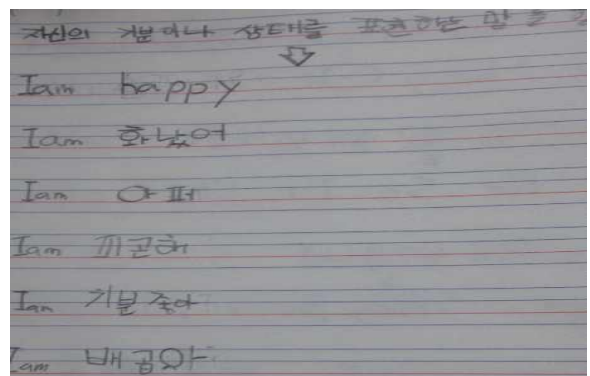 자신의 기분이나 상태를 표현하는 말
Iam happy
Iam 화났어
Iam 아퍼
Iam 피곤해
Iam 기분좋아
Iam 배곱와